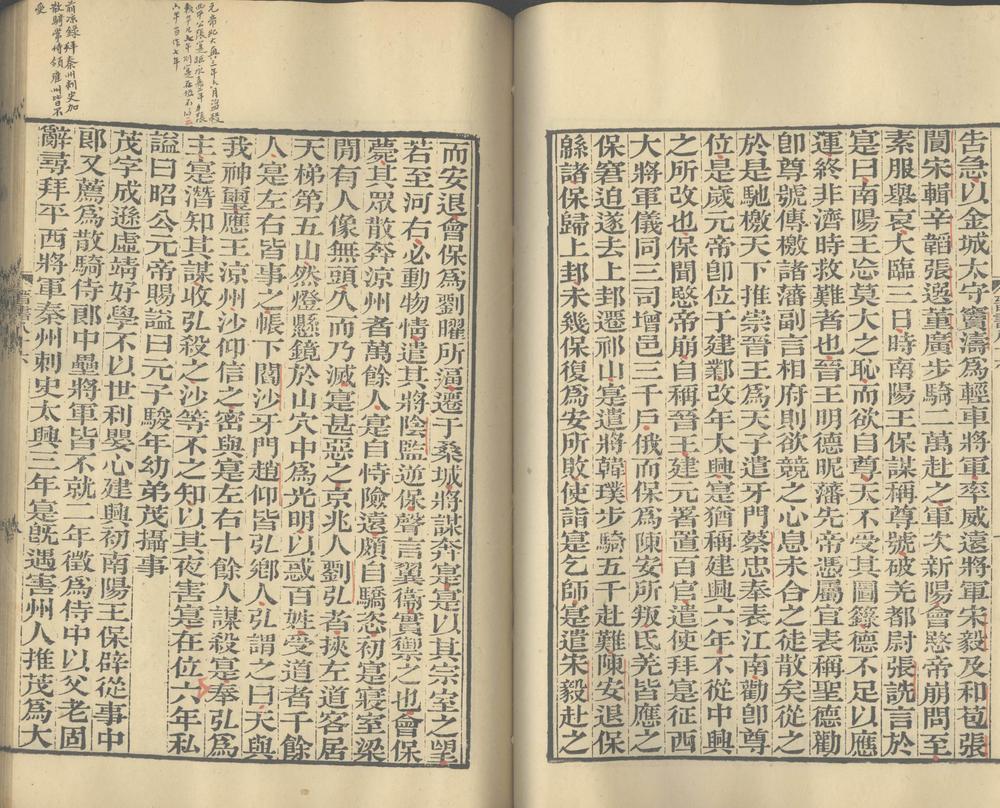 告急以金城太守竇濤爲輕車將軍率威遠將軍宋毅及和苞張
閬宋輯辛韜張選董廣步騎二萬赴之軍次新陽會愍帝崩問至
素服舉哀大臨三日時南陽王保謀稱尊號破羌都尉張詵言於
寔曰南陽王忘莫大之恥而欲自尊天不受其圖籙德不足以應
運終非濟時救難者也晉王明德昵藩先帝憑屬宜表稱聖德勸
卽尊號傳檄諸藩副言相府則欲競之心息未合之徒散矣從之
於是馳檄天下推崇晉王爲天子遣牙門蔡忠奉表江南勸卽尊
位是歲元帝卽位于建鄴改年太興寔猶稱建興六年不從中興
之所改也保聞愍帝崩自稱晉王建元署置百官遣使拜寔征西
大將軍儀同三司增邑三千戶俄而保爲陳安所叛氐羌皆應之
保窘迫遂去上邽遷祁山寔遣將韓璞步騎五千赴難陳安退保
緜諸保歸上邽未幾保復爲安所敗使詣寔乞師寔遣宋毅赴之
而安退會保爲劉曜所逼遷于桑城將謀奔寔寔以其宗室之望
若至河右必動物情遣其將陰監逆保聲言翼衞實禦之也會保
薨其眾散奔涼州者萬餘人寔自恃險遠頗自驕恣初寔寢室梁
閒有人像無頭久而乃滅寔甚惡之京兆人劉弘者挾左道客居
天梯第五山然燈懸鏡於山穴中爲光明以惑百姓受道者千餘
人寔左右皆事之帳下閻沙牙門趙仰皆弘鄉人弘謂之曰天與
我神璽應王涼州沙仰信之密與寔左右十餘人謀殺寔奉弘爲
主寔潛知其謀收弘殺之沙等不之知以其夜害寔在位六年私
謚曰昭公元帝賜謚曰元子駿年幼弟茂攝事
茂字成遜虛靖好學不以世利嬰心建興初南陽王保辟從事中
郎又薦爲散騎侍郎中壘將軍皆不就二年徵爲侍中以父老固
辭尋拜平西將軍秦州刺史太興三年寔旣遇害州人推茂爲大
元帝紀大興三年六月盜殺
西平公張寔
六年當作七年
前涼錄拜秦州刺史加
散騎常侍領雍州皆不
受